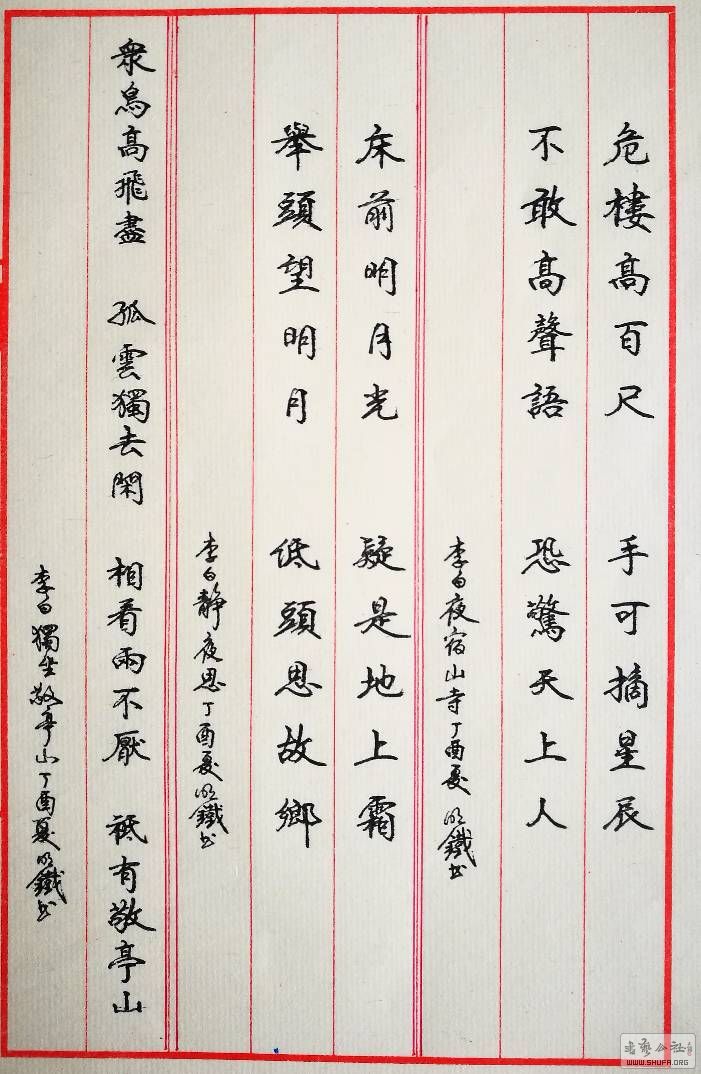 危樓高百尺 手可摘星辰
不敢高聲語 恐驚天上人
李白夜宿山寺丁酉夏 明鐵書
床前明月光 疑是地上霜
舉頭望明月 低頭思故鄉
李白靜夜思丁酉夏明鐵書
衆鳥高飛盡 孤雲獨去閑 相看兩不厭 祗有敬亭山
李白獨坐敬亭山丁酉夏明鐵書
书艺公社
WWW.SHUFA.ORG